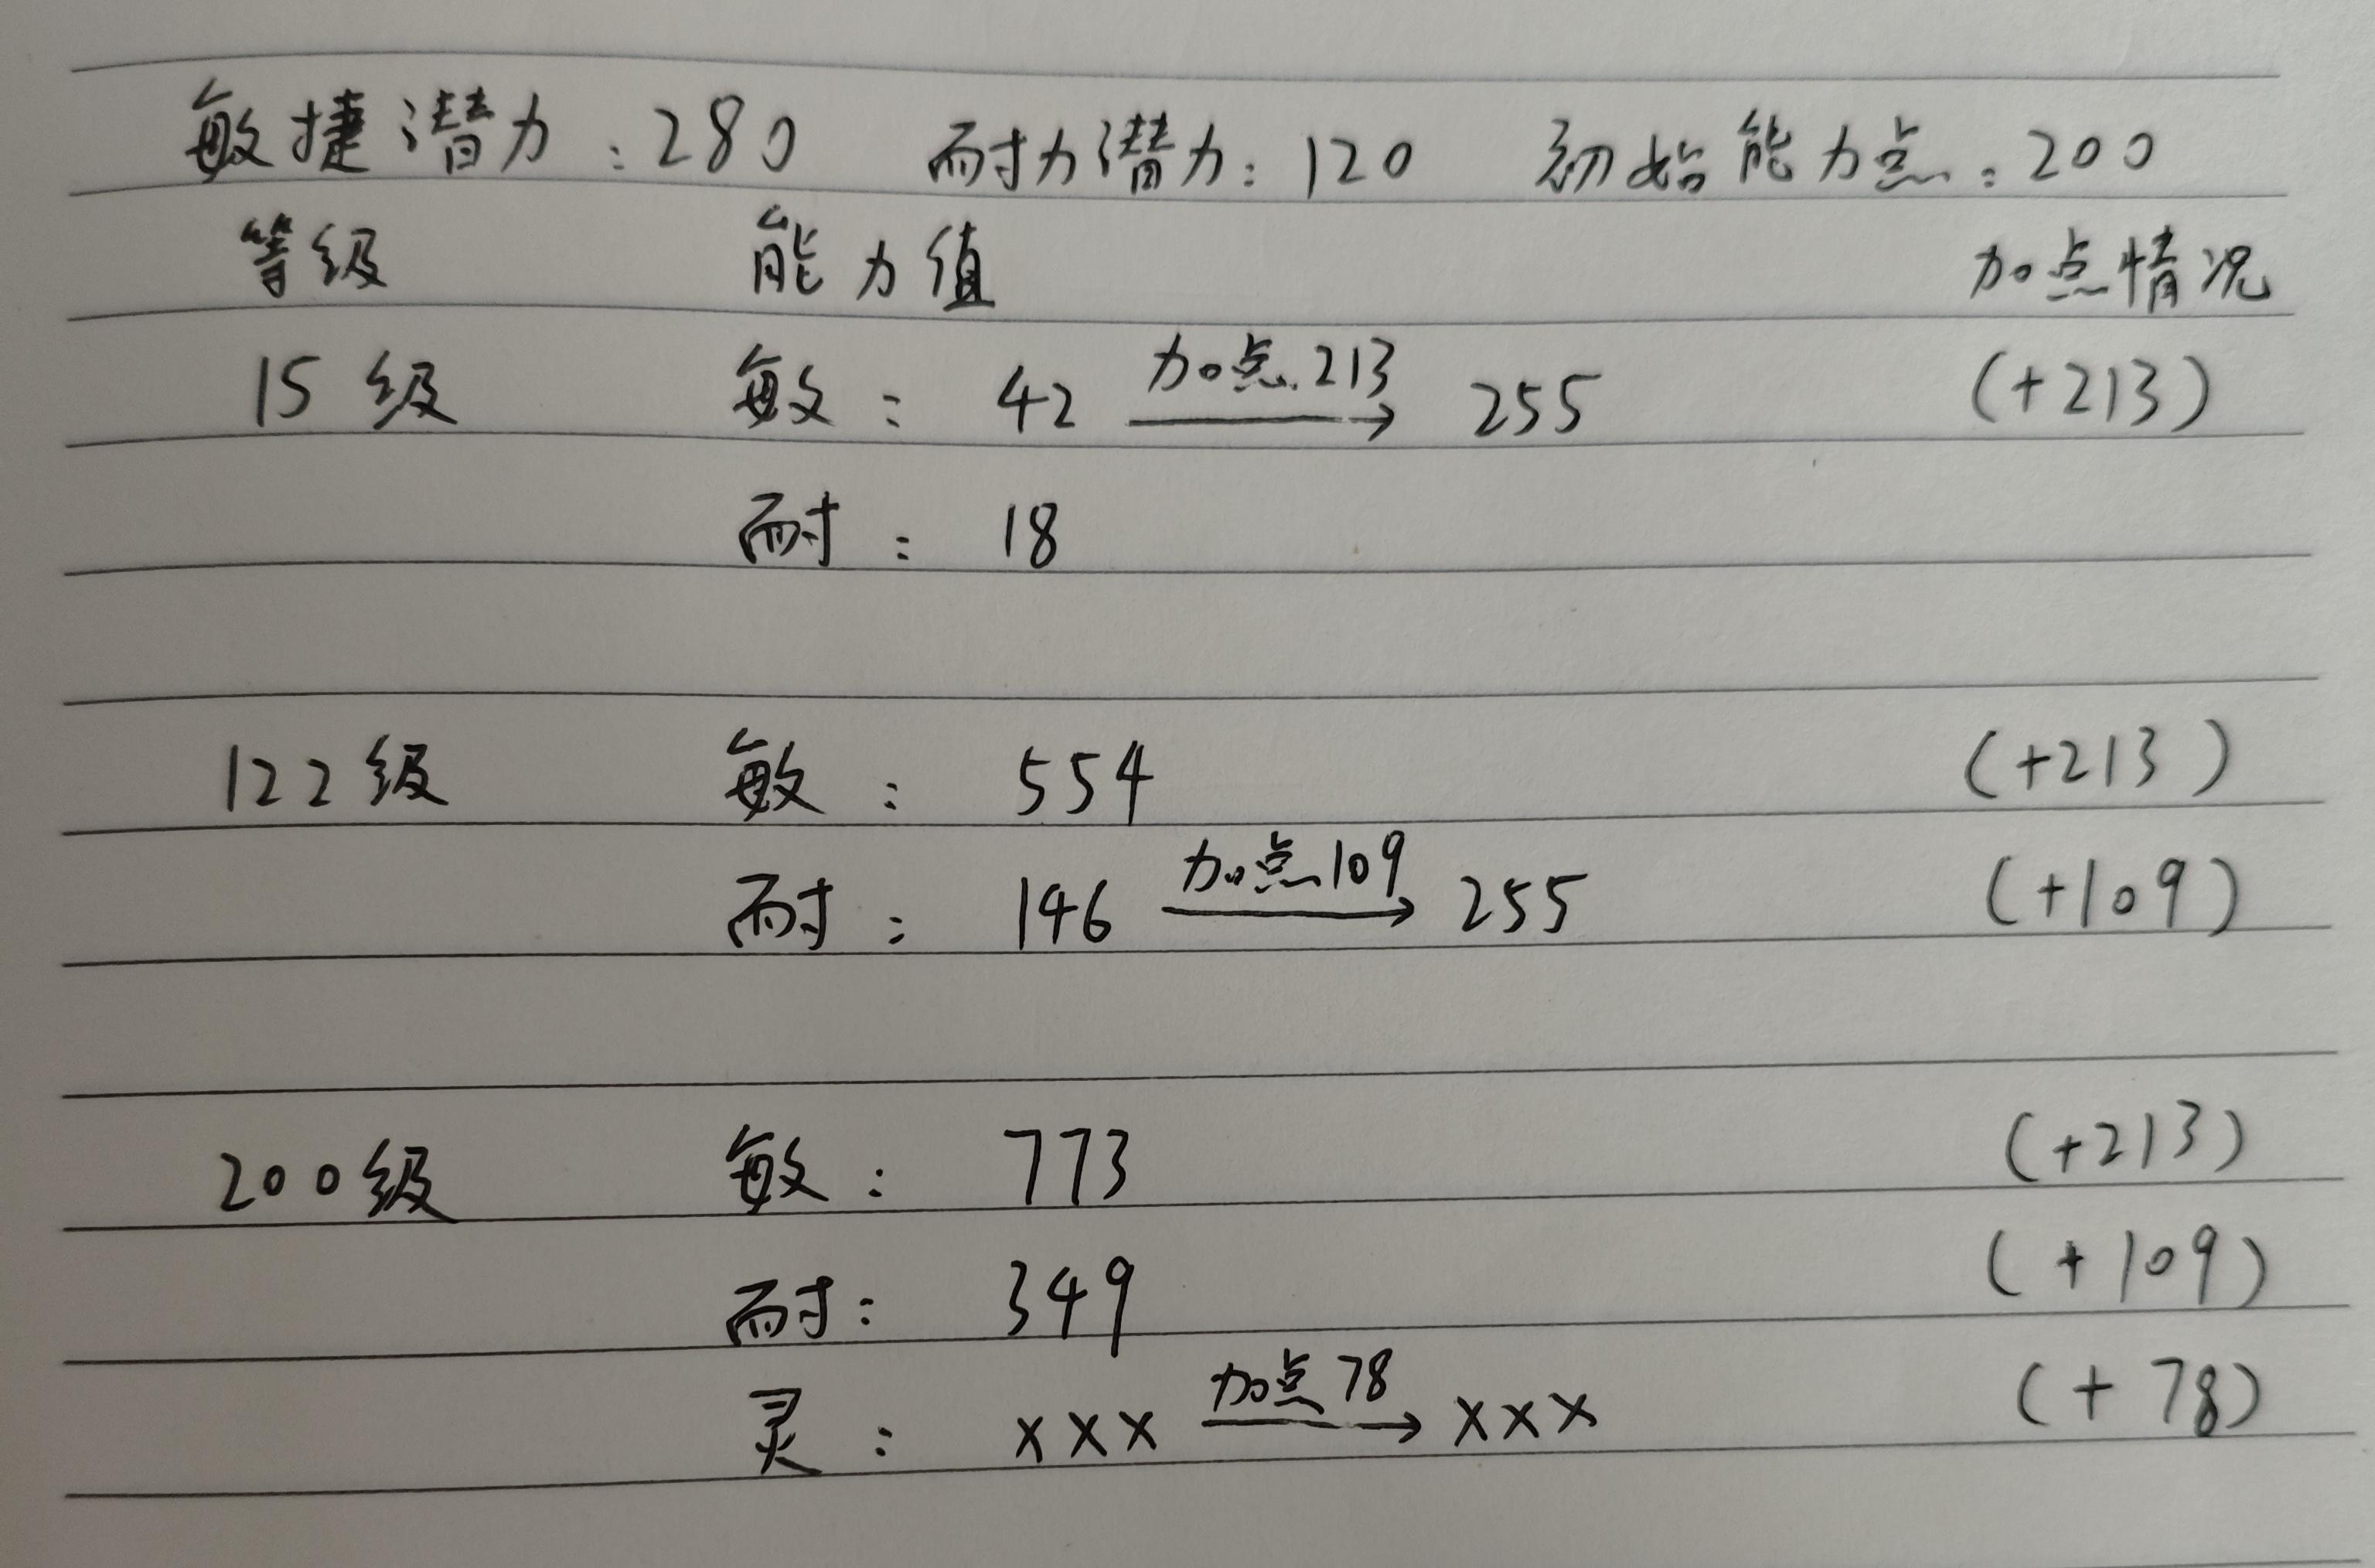 敏捷潜力：280 耐力潜力：120 初始能力点：200
等级 能力值 加点情况
15级 敏： 42 加点213 → 255 (+213)
耐： 18
122级 敏： 554 (+213)
耐： 146 加点109 → 255 (+109)
200级 敏： 773 (+213)
耐： 349 (+109)
灵： xxx 加点78 → xxx (+78)